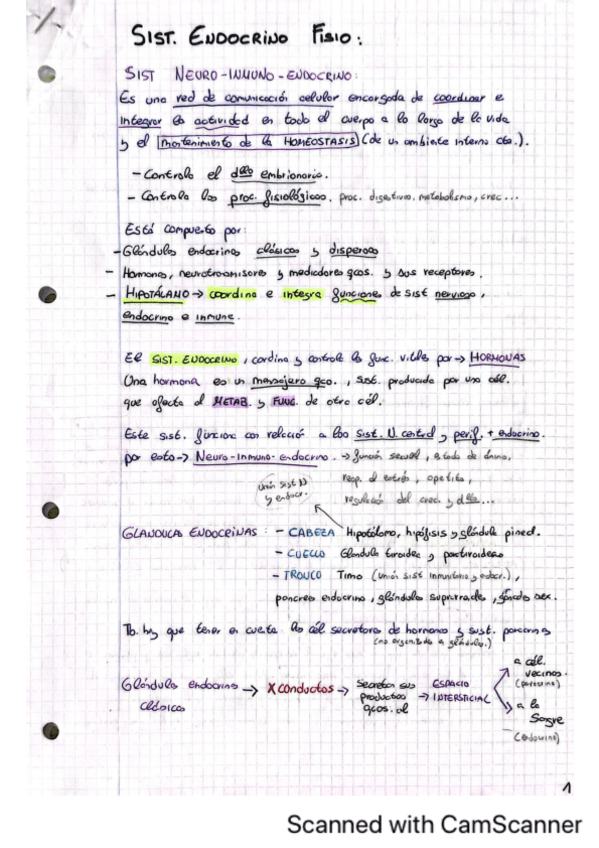 SIST. ENDOCRINO FISIO:
SIST NEURO-INMUNO-ENDOCRINO:
Es una red de comunicación celular encargada de coordinar e
integrar la actividad en todo el cuerpo a lo largo de la vida
y el mantenimiento de la HOMEOSTASIS (de un ambiente interno cte.).
- Controla el dllo embrionario.
- Controla los proc. fisiológicos. proc. digestivo, metabolismo, crec...
Está compuesto por:
- Glándulas endocrinas clásicas y dispersas
- Hormonas, neurotransmisores y mediadores qcos. y sus receptores.
- HIPOTÁLAMO → coordina e integra funciones de sist nervioso,
endocrino e inmune.
El SIST. ENDOCRINO, cordina y controla las func. vitales por → HORMONAS
Una hormona es un mensajero qco., sust. producida por una cél.
que afecta al METAB. y FUNC. de otra cél.
Este sist. funciona con relación a los Sist. N. central y perif. + endocrino.
por esto → Neuro-Inmuno-endocrino. → función sexual, estado de ánimo,
unión sist N y endocr.
resp. al estrés, apetito,
regulación del crec. y dllo...
GLANDULAS ENDOCRINAS: - CABEZA Hipotálamo, hipófisis y glándula pineal.
- CUELLO Glandula tiroides y paratiroides
- TRONCO Timo (unión sist inmunitario y endocr.),
pancreas endocrino, glándulas suprarrenales, gónadas sex.
Tb. hay que tener en cuenta las cél secretoras de hormonas y sust. paracrinas
(no organizadas a glándulas.)
Glándulas endocrinas clásicas → X conductos → Secretan sus productos qcos. al → ESPACIO INTERSTICIAL
a cél. vecinas. (paracrina)
a la Sangre (endocrina)
1
Scanned with CamScanner